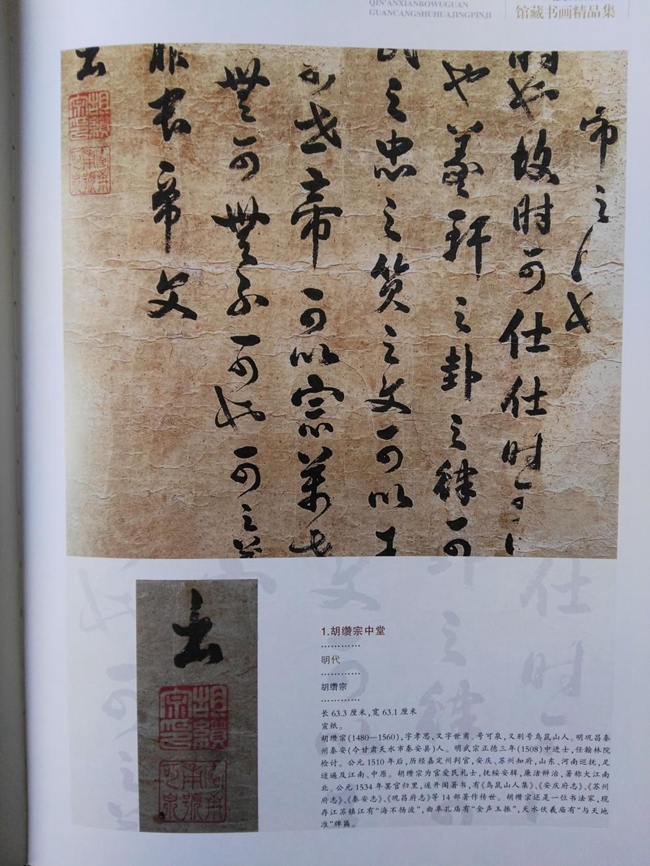 QIN'ANXIANBOWUGUAN
GUANCANGSHUHUAJINGPINJI
馆藏书画精品集
帝之
故时可仕仕时
也羲轩之卦之肄可
之忠之质之文可以王
世帝可以宗万世
无可无不可也可之
服衣帝文
去
去
胡缵
宗印
1.胡缵宗中堂
明代
胡缵宗
长 63.3 厘米,宽 63.1 厘米
宣纸。
胡缵宗(1480—1560),字孝思,又字世甫。号可泉,又别号鸟鼠山人。明巩昌秦
州秦安(今甘肃天水市秦安县)人。明武宗正德三年(1508)中进士,任翰林院
检讨。公元 1510 年后,历经嘉定州判官,安庆、苏州知府,山东、河南巡抚,足
迹遍及江南、中原。胡缵宗为官爱民礼士,抚绥安辑,廉洁辩治,著称大江南
北。公元 1534 年罢官归里,遂开阁著书,有《鸟鼠山人集》、《安庆府志》、《苏州
府志》、《秦安志》、《巩昌府志》等 14 部著作传世。胡缵宗还是一位书法家,现
存江苏镇江有“海不扬波”,曲阜孔庙有“金声玉振”,天水伏羲庙有“与天地
准”牌匾。